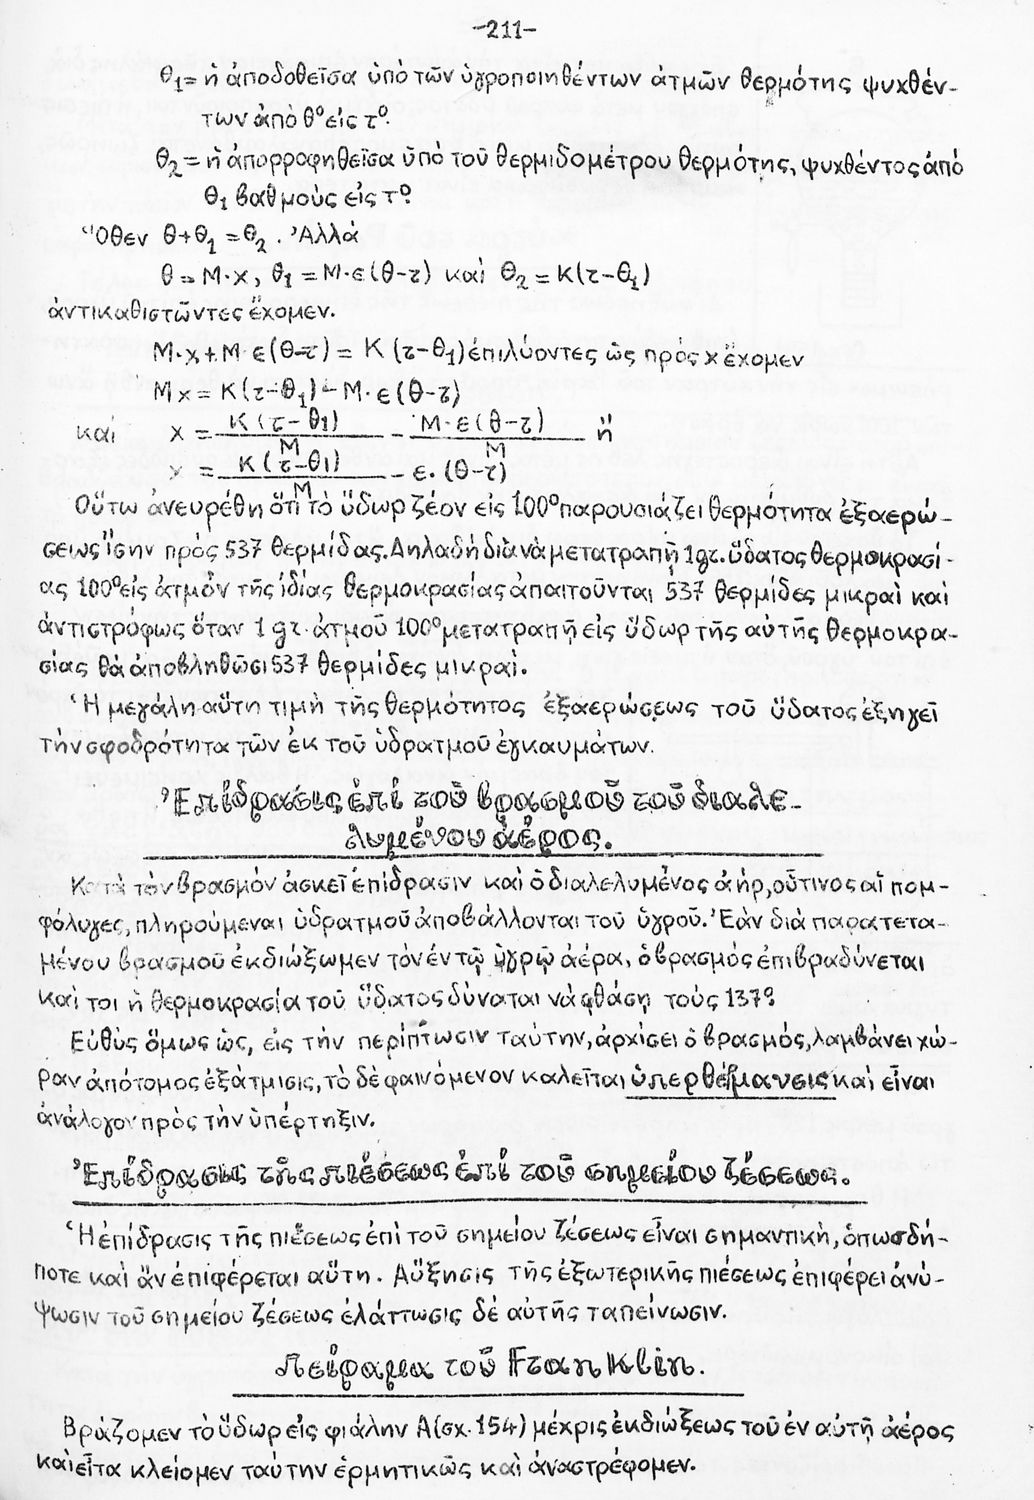 -211-
θ₁= ἡ ἀποδοθεῖσα ὑπὸ τῶν ὑγροποιηθέντων ἀτμῶν θερμότης ψυχθέν-
των ἀπὸ θ° εἰς τ°.
θ₂= ἡ ἀπορροφηθεῖσα ὑπὸ τοῦ θερμιδομέτρου θερμότης, ψυχθέντος ἀπό
θ₁ βαθμοὺς εἰς τ°.
Ὅθεν θ+θ₁ =θ₂. Ἀλλά
θ = Μ·x, θ₁ = Μ·ε(θ-τ) καί θ₂ = Κ(τ-θ₁)
ἀντικαθιστῶντες ἔχομεν.
Μ·x + Μ ε(θ-τ) = Κ (τ-θ₁) ἐπιλύοντες ὡς πρός x ἔχομεν
Μx = Κ(τ-θ₁) - Μ·ε(θ-τ)
καί x = Κ(τ-θ₁)/Μ - Μ·ε(θ-τ)/Μ ἤ
x = Κ(τ-θ₁)/Μ - ε.(θ-τ)
Οὕτω ἀνευρέθη ὅτι τὸ ὕδωρ ζέον εἰς 100° παρουσιάζει θερμότητα ἐξαερώ-
σεως ἴσην πρός 537 θερμίδας. Δηλαδή διὰ νὰ μετατραπῇ 1gr. ὕδατος θερμοκρασί-
ας 100° εἰς ἀτμόν τῆς ἰδίας θερμοκρασίας ἀπαιτοῦνται 537 θερμίδες μικραὶ καί
ἀντιστρόφως ὅταν 1 gr. ἀτμοῦ 100° μετατραπῇ εἰς ὕδωρ τῆς αὐτῆς θερμοκρα-
σίας θὰ ἀποβληθῶσι 537 θερμίδες μικραὶ.
Ἡ μεγάλη αὕτη τιμὴ τῆς θερμότητος ἐξαερώσεως τοῦ ὕδατος ἐξηγεῖ
τὴν σφοδρότητα τῶν ἐκ τοῦ ὑδρατμοῦ ἐγκαυμάτων.
Ἐπίδρασις ἐπί τοῦ βρασμοῦ τοῦ διαλε-
λυμένου ἀέρος.
Κατὰ τὸν βρασμόν ἀσκεῖ ἐπίδρασιν καὶ ὁ διαλελυμένος ἀήρ, οὗτινος αἱ πομ-
φόλυγες, πληρούμεναι ὑδρατμοῦ ἀποβάλλονται τοῦ ὑγροῦ. Ἐὰν διὰ παρατετα-
μένου βρασμοῦ ἐκδιώξωμεν τὸν ἐν τῷ ὑγρῷ ἀέρα, ὁ βρασμὸς ἐπιβραδύνεται
καὶ τοι ἡ θερμοκρασία τοῦ ὕδατος δύναται νὰ φθάσῃ τοὺς 137°.
Εὐθὺς ὅμως ὡς, εἰς τὴν περίπτωσιν ταύτην, ἀρχίσει ὁ βρασμός, λαμβάνει χώ-
ραν ἀπότομος ἐξάτμισις, τὸ δὲ φαινόμενον καλεῖται ὑπερθέρμανσις καὶ εἶναι
ἀνάλογον πρὸς τὴν ὑπέρτηξιν.
Ἐπίδρασις τῆς πιέσεως ἐπί τοῦ σημείου ζέσεως.
Ἡ ἐπίδρασις τῆς πιέσεως ἐπὶ τοῦ σημείου ζέσεως εἶναι σημαντική, ὁπωσδή-
ποτε καὶ ἄν ἐπιφέρεται αὕτη. Αὔξησις τῆς ἐξωτερικῆς πιέσεως ἐπιφέρει ἀνύ-
ψωσιν τοῦ σημείου ζέσεως ἐλάττωσις δέ αὐτῆς ταπείνωσιν.
Πείραμα τοῦ Franklin.
Βράζομεν τὸ ὕδωρ εἰς φιάλην Α(σχ. 154) μέχρις ἐκδιώξεως τοῦ ἐν αὐτῇ ἀέρος
καὶ εἶτα κλείομεν ταύτην ἑρμητικῶς καὶ ἀναστρέφομεν.